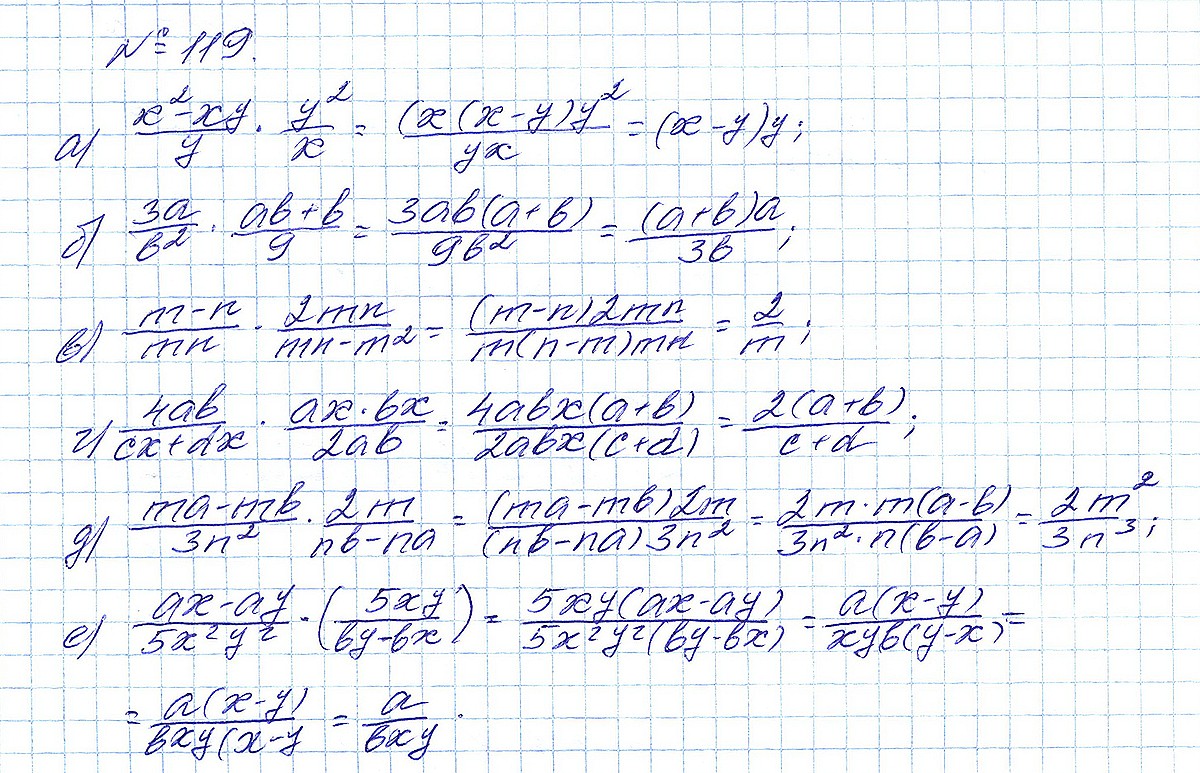 № 119.
а) (x² - xy)/y · y²/x = (x(x-y)y²/yx = (x-y)y;
б) 3a/b² · (ab+b)/9 = 3ab(a+b)/9b² = (a+b)a/3b;
в) (m-n)/mn · 2mn/(mn-m²) = (m-n)2mn/m(n-m)mn = 2/m;
г) 4ab/(cx+dx) · ax·bx/2ab = 4abx(a+b)/2abx(c+d) = 2(a+b)/(c+d);
д) (ma-mb)/3n² · 2m/(nb-na) = (ma-mb)2m/(nb-na)3n² = 2m·m(a-b)/3n²·n(b-a) = 2m²/3n³;
е) (ax-ay)/5x²y² · (5xy/(by-bx)) = 5xy(ax-ay)/5x²y²(by-bx) = a(x-y)/xyb(y-x) =
= a(x-y)/bxy(x-y = a/bxy.